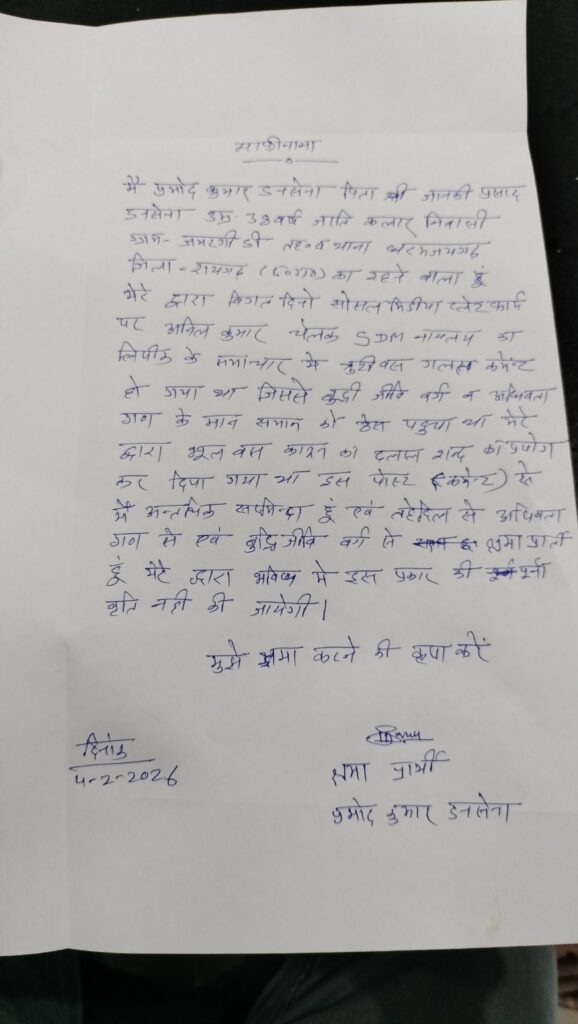 माफीनामा
मै प्रमोद कुमार डनसेना पिता श्री जानकी प्रसाद
डनसेना उम्र 38 वर्ष जाति कलार निवासी
ग्राम- जमरगी डी तह० व थाना धरमजयगढ
जिला - रायगढ (छ०ग०) का रहने वाला हूं
मेरे द्वारा विगत दिनो सोसल मिडीया प्लेटफार्म
पर अनिल कुमार चेलक SDM का
के समांचार मे त्रुटी वस गलत कमेन्ट
हो गया था जिससे बुद्धी जीवि वर्ग व अधिवक्ता
गण के मान समान को ठेस पहुचा था मेरे
द्वारा भूल वस कारण का दलाल शब्द का प्रयोग
कर दिया गया था इस पोस्ट (कमेन्ट) से
मै सरमिन्दा हूं एवं तहेदिल से अधिवक्ता
गण से एवं बुद्धि जीवि वर्ग से क्षमा प्रार्ती
हूं मेरे द्वारा भविष्य मे इस प्रकार की पुर्ना
वृति नही की जायेगी।
मुझे क्षमा करने की कृपा करें
दिनांक
4-2-2026
क्षमा प्रार्थी
प्रमोद कुमार डनसेना